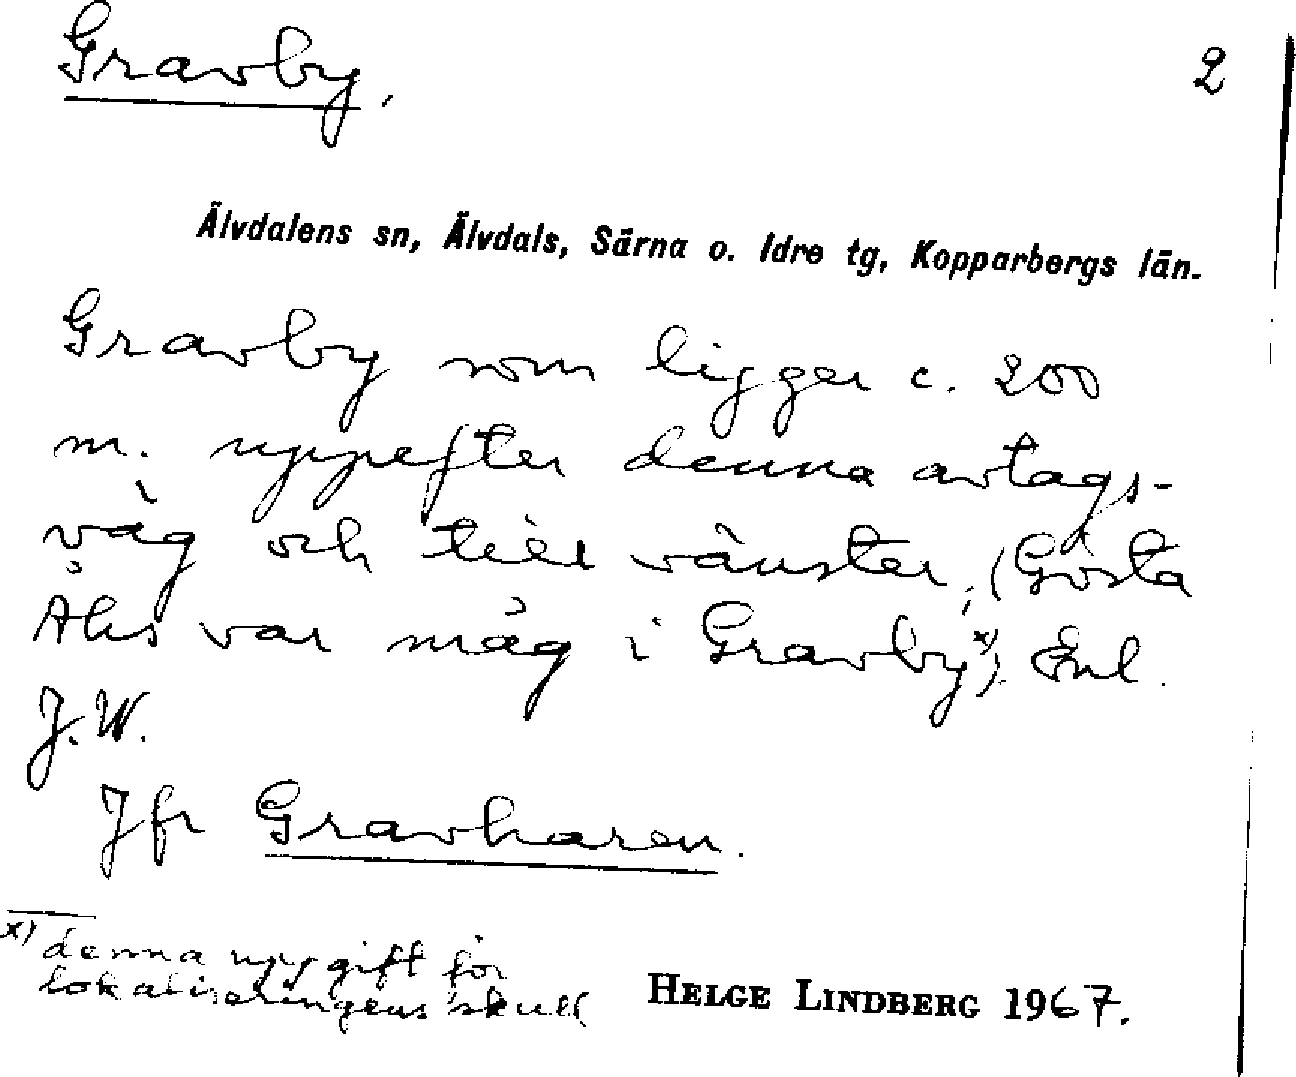 Gravby, 2
Älvdalens sn, Älvdals, Särna o. Idre tg, Kopparbergs län.
Gravby som ligger c. 200
m. uppefter denna avtags-
väg och till vänster, (Gösta
Åhs var måg i Gravby x)). Enl.
J.W.
Jfr Gravharen.
x) denna uppgift för
lokaliseringens skull
HELGE LINDBERG 1967.